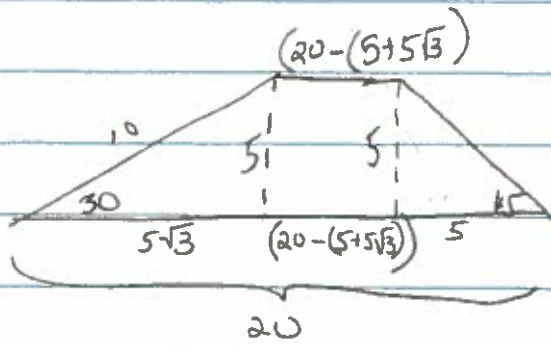 (20-(5+5√3)
10
5
5
30
45
5√3
(20-(5+5√3))
5
20